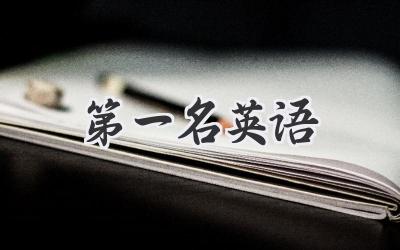 第一名英语